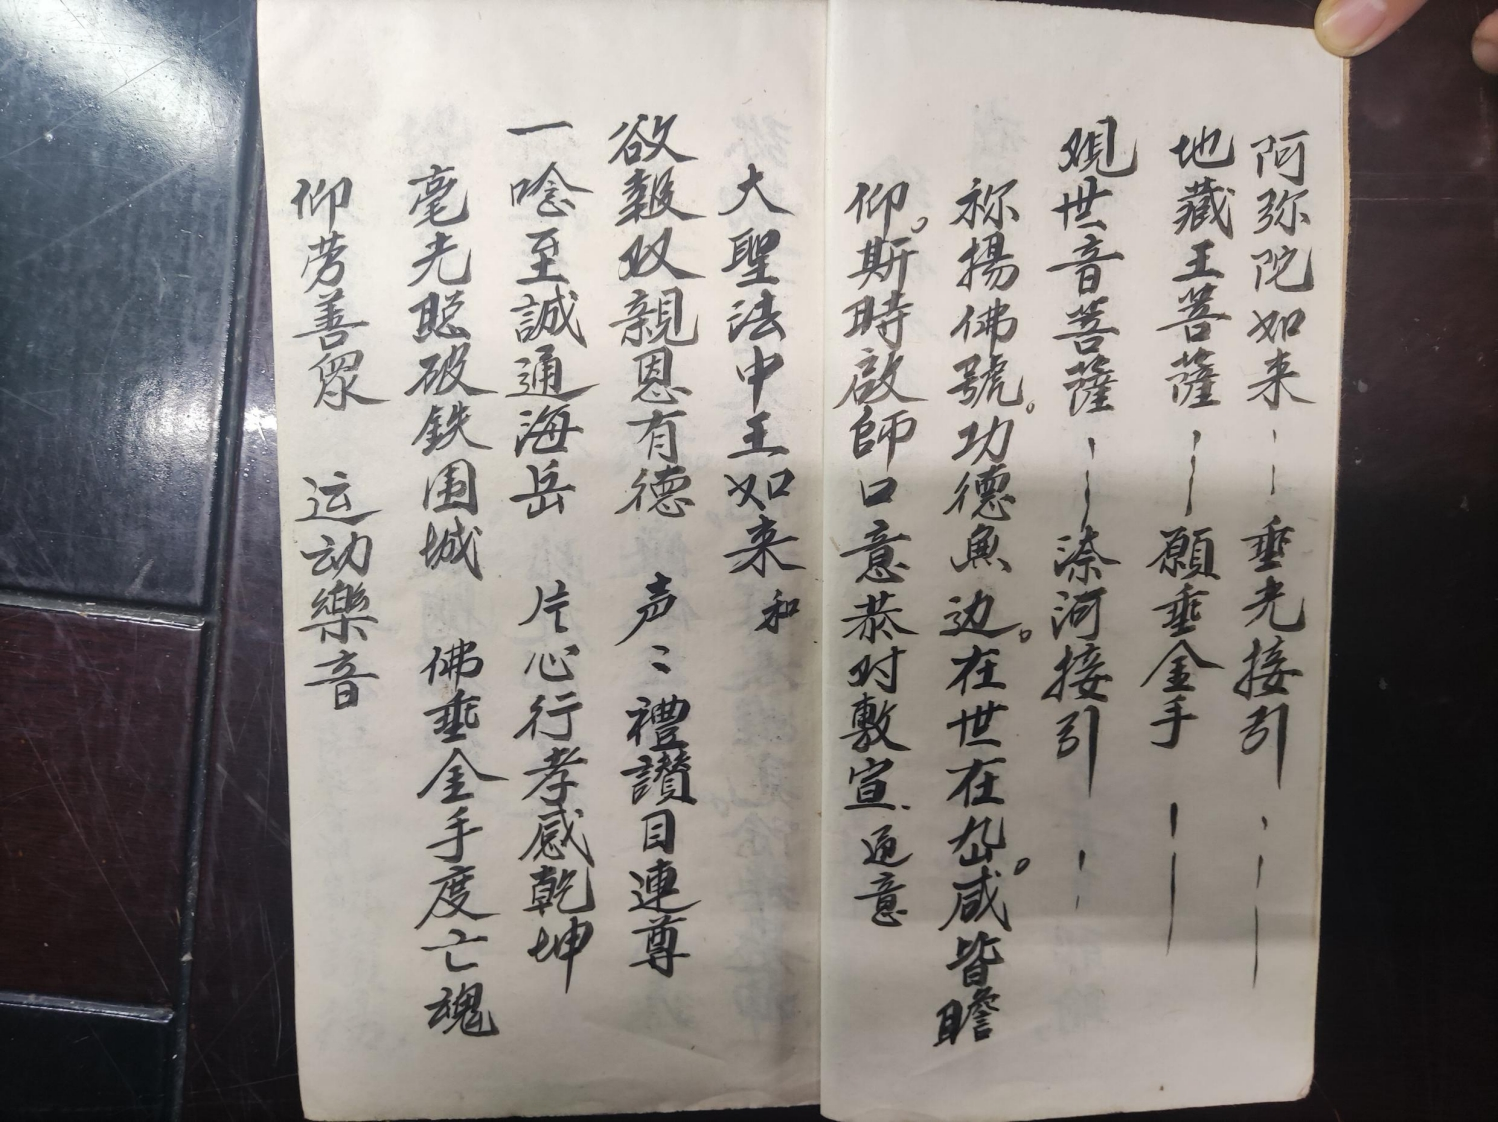 阿弥陀如来 垂光接引
地藏王菩薩 願垂金手
观世音菩薩 渿河接引
祢揚佛號。功德魚边。在世在岙。咸皆瞻
仰。斯時啟師口意恭对敷宣、通意
大聖法中王如来 和
欲報双親恩有德 声〻禮讃目連尊
一唸至誠通海岳 片心行孝感乾坤
毫光聪破鉄围城 佛垂金手度亡魂
仰劳善眾 运动樂音